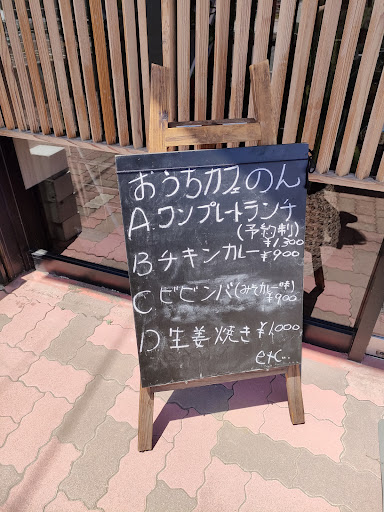 おうちカフェのん
A.ワンプレートランチ
(予約制)
¥1,300
B.チキンカレー¥900
C.ビビンバ(みそカレー味)
¥900
D.生姜焼き¥1,000
etc...